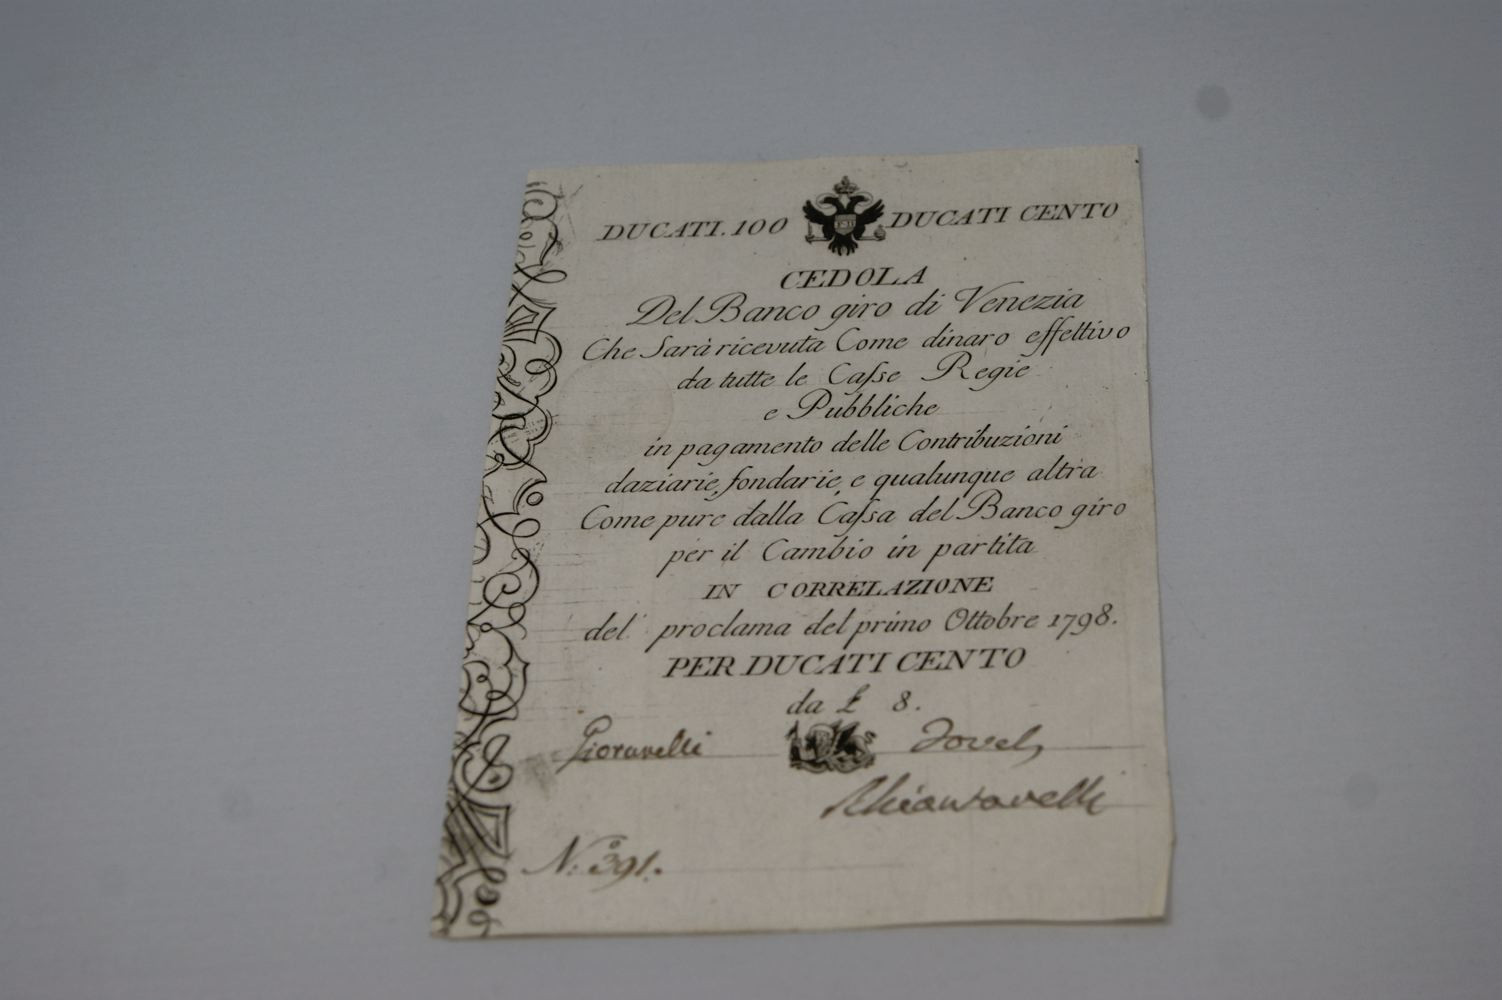 DUCATI.100 DUCATI CENTO
CEDOLA
Del Banco giro di Venezia
Che Sarà ricevuta Come dinaro effettivo
da tutte le Casse Regie
e Pubbliche
in pagamento delle Contribuzioni
daziarie, fondarie, e qualunque altra
Come pure dalla Cassa del Banco giro
per il Cambio in partita
IN CORRELAZIONE
del proclama del primo Ottobre 1798.
PER DUCATI CENTO
da £ 8.
N:º 391.